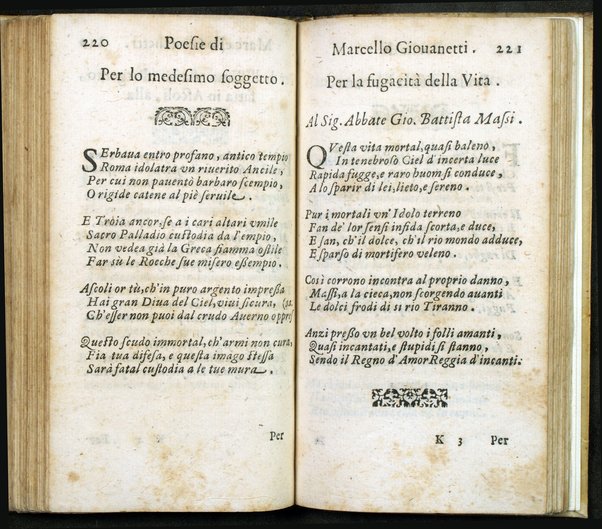 220 Poesie di
Per lo medesimo soggetto.
SErbaua entro profano, antico tempio
Roma idolatra vn riuerito Ancile,
Per cui non pauentò barbaro scempio,
O rigide catene al piè seruile.
E Tròia ancor, se a i cari altari vmile
Sacro Palladio custodia da l'empio,
Non vedea già la Greca fiamma ostile
Far sù le Rocche sue misero essempio.
Ascoli or tù, ch'in puro argento impressa
Hai gran Diua del Ciel, viui sicura, (sa
Ch'esser non puoi dal crudo Auerno oppres
Questo scudo immortal, ch'armi non cura,
Fia tua difesa, e questa imago stessa
Sarà fatal custodia a le tue mura.
Per
Marcello Giouanetti. 221
Per la fugacità della Vita.
Al Sig. Abbate Gio. Battista Massi.
QVesta vita mortal, quasi baleno,
In tenebroso Ciel d'incerta luce
Rapida fugge, e raro huom si conduce,
A lo sparir di lei, lieto, e sereno.
Pur i mortali vn' Idolo terreno
Fan de' lor sensi infida scorta, e duce,
E san, ch'il dolce, ch'il rio mondo adduce,
E sparso di mortifero veleno.
Così corrono incontra al proprio danno,
Massi, a la cieca, non scorgendo auanti
Le dolci frodi di sì rio Tiranno.
Anzi presso vn bel volto i folli amanti,
Quasi incantati, e stupidi si stanno,
Sendo il Regno d'Amor Reggia d'incanti.
K 3 Per